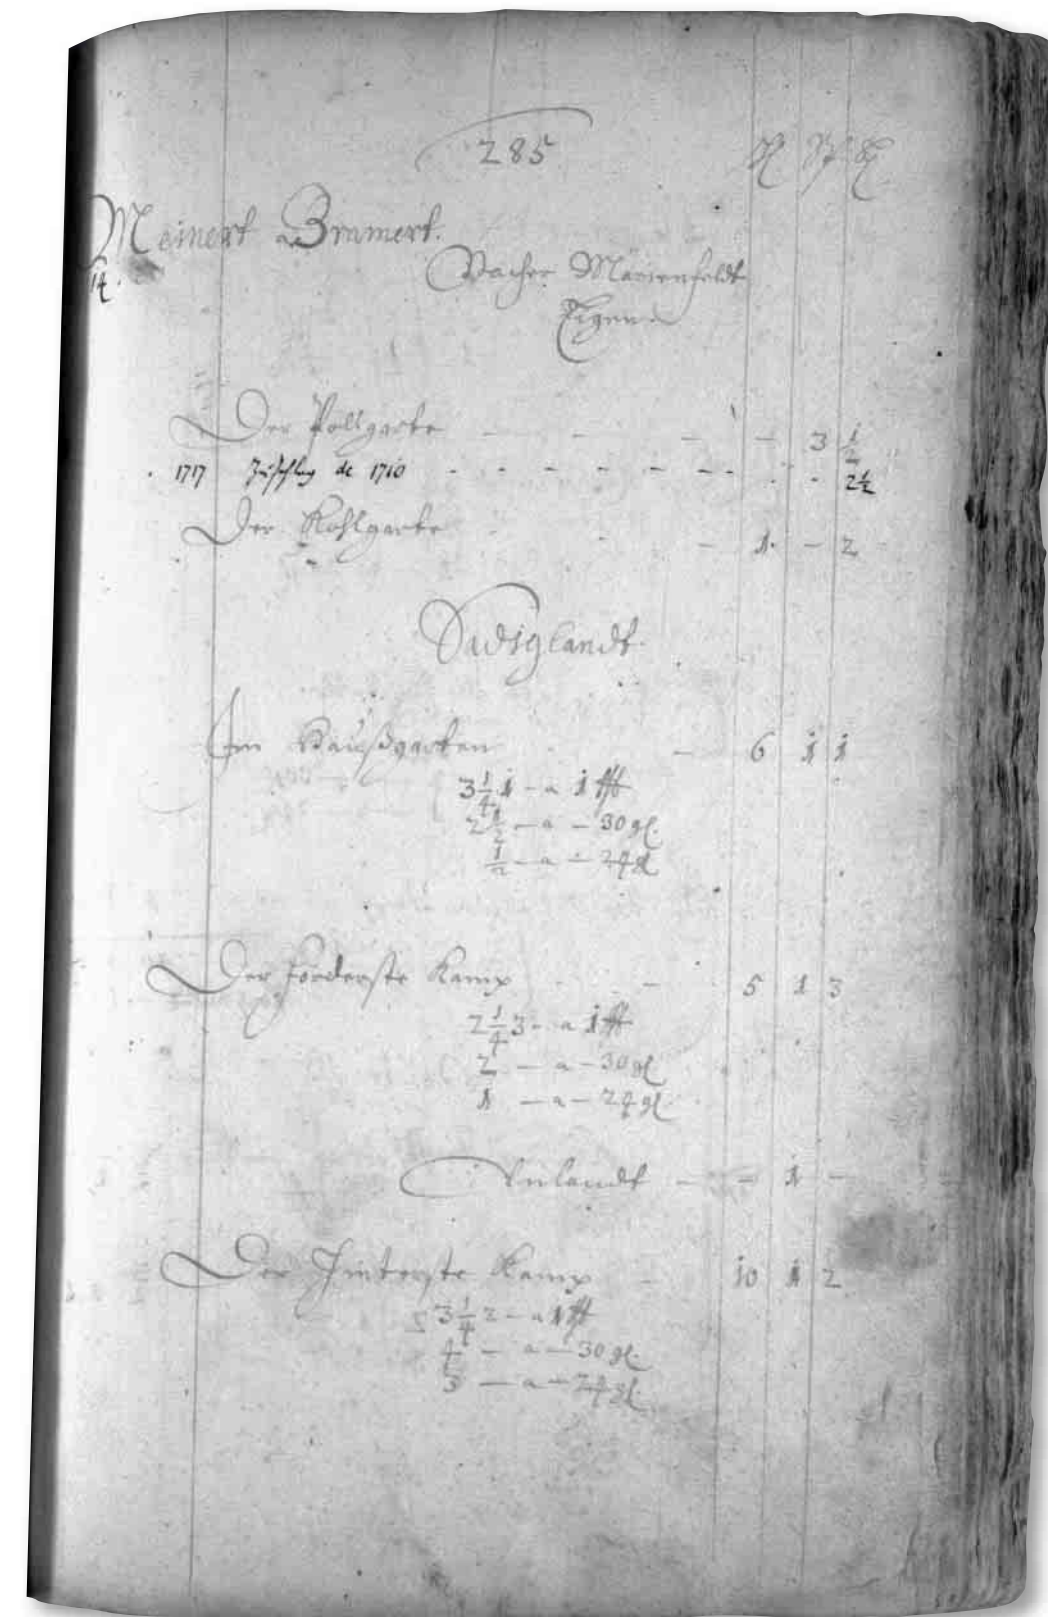 285
Meinert Bramert.
14.
Marienfeldt
Eigen
Der Pollgarte - - - - 3 1/2
1717 Zuschlag de 1710 - - - - - - - - - 2 1/2
Der Kohlgarte - 1. - 2
Sadiglandt.
Im Haußgarten - 6 1 1
3 1/4 1 - a 1
2 1/2 - a - 30 gl.
1/2 - a - 24 gl
Der forderste Kamp - 5 1 3
2 1/4 3 - a 1
2 - a - 30 gl
1 - a - 24 gl.
- - 1 -
Der Hinterste Kamp - 10 1 2
3 1/4 2 - a 1
4 - a - 30 gl.
3 - a - 24 gl.